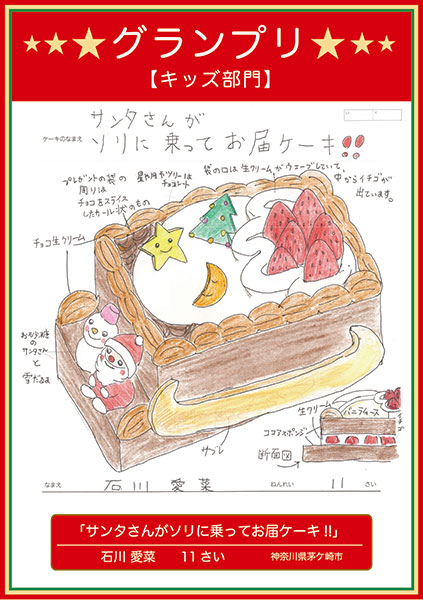 グランプリ
【キッズ部門】
ケーキのなまえ
サンタさんが
ソリに乗ってお届ケーキ!!
プレゼントの袋の
周りは
チョコをスライス
したカール状のもの
星や月やツリーは
チョコレート
袋の口は生クリームがウェーブしていて、
中からイチゴが
出ています。
チョコ生クリーム
おもち糖
の
サンタさん
と
雪だるま
サブレ
生クリーム
バニラムース
ココアスポンジ
断面図
なまえ 石川 愛菜 ねんれい 11 さい
「サンタさんがソリに乗ってお届ケーキ!!」
石川 愛菜 11さい 神奈川県茅ケ崎市